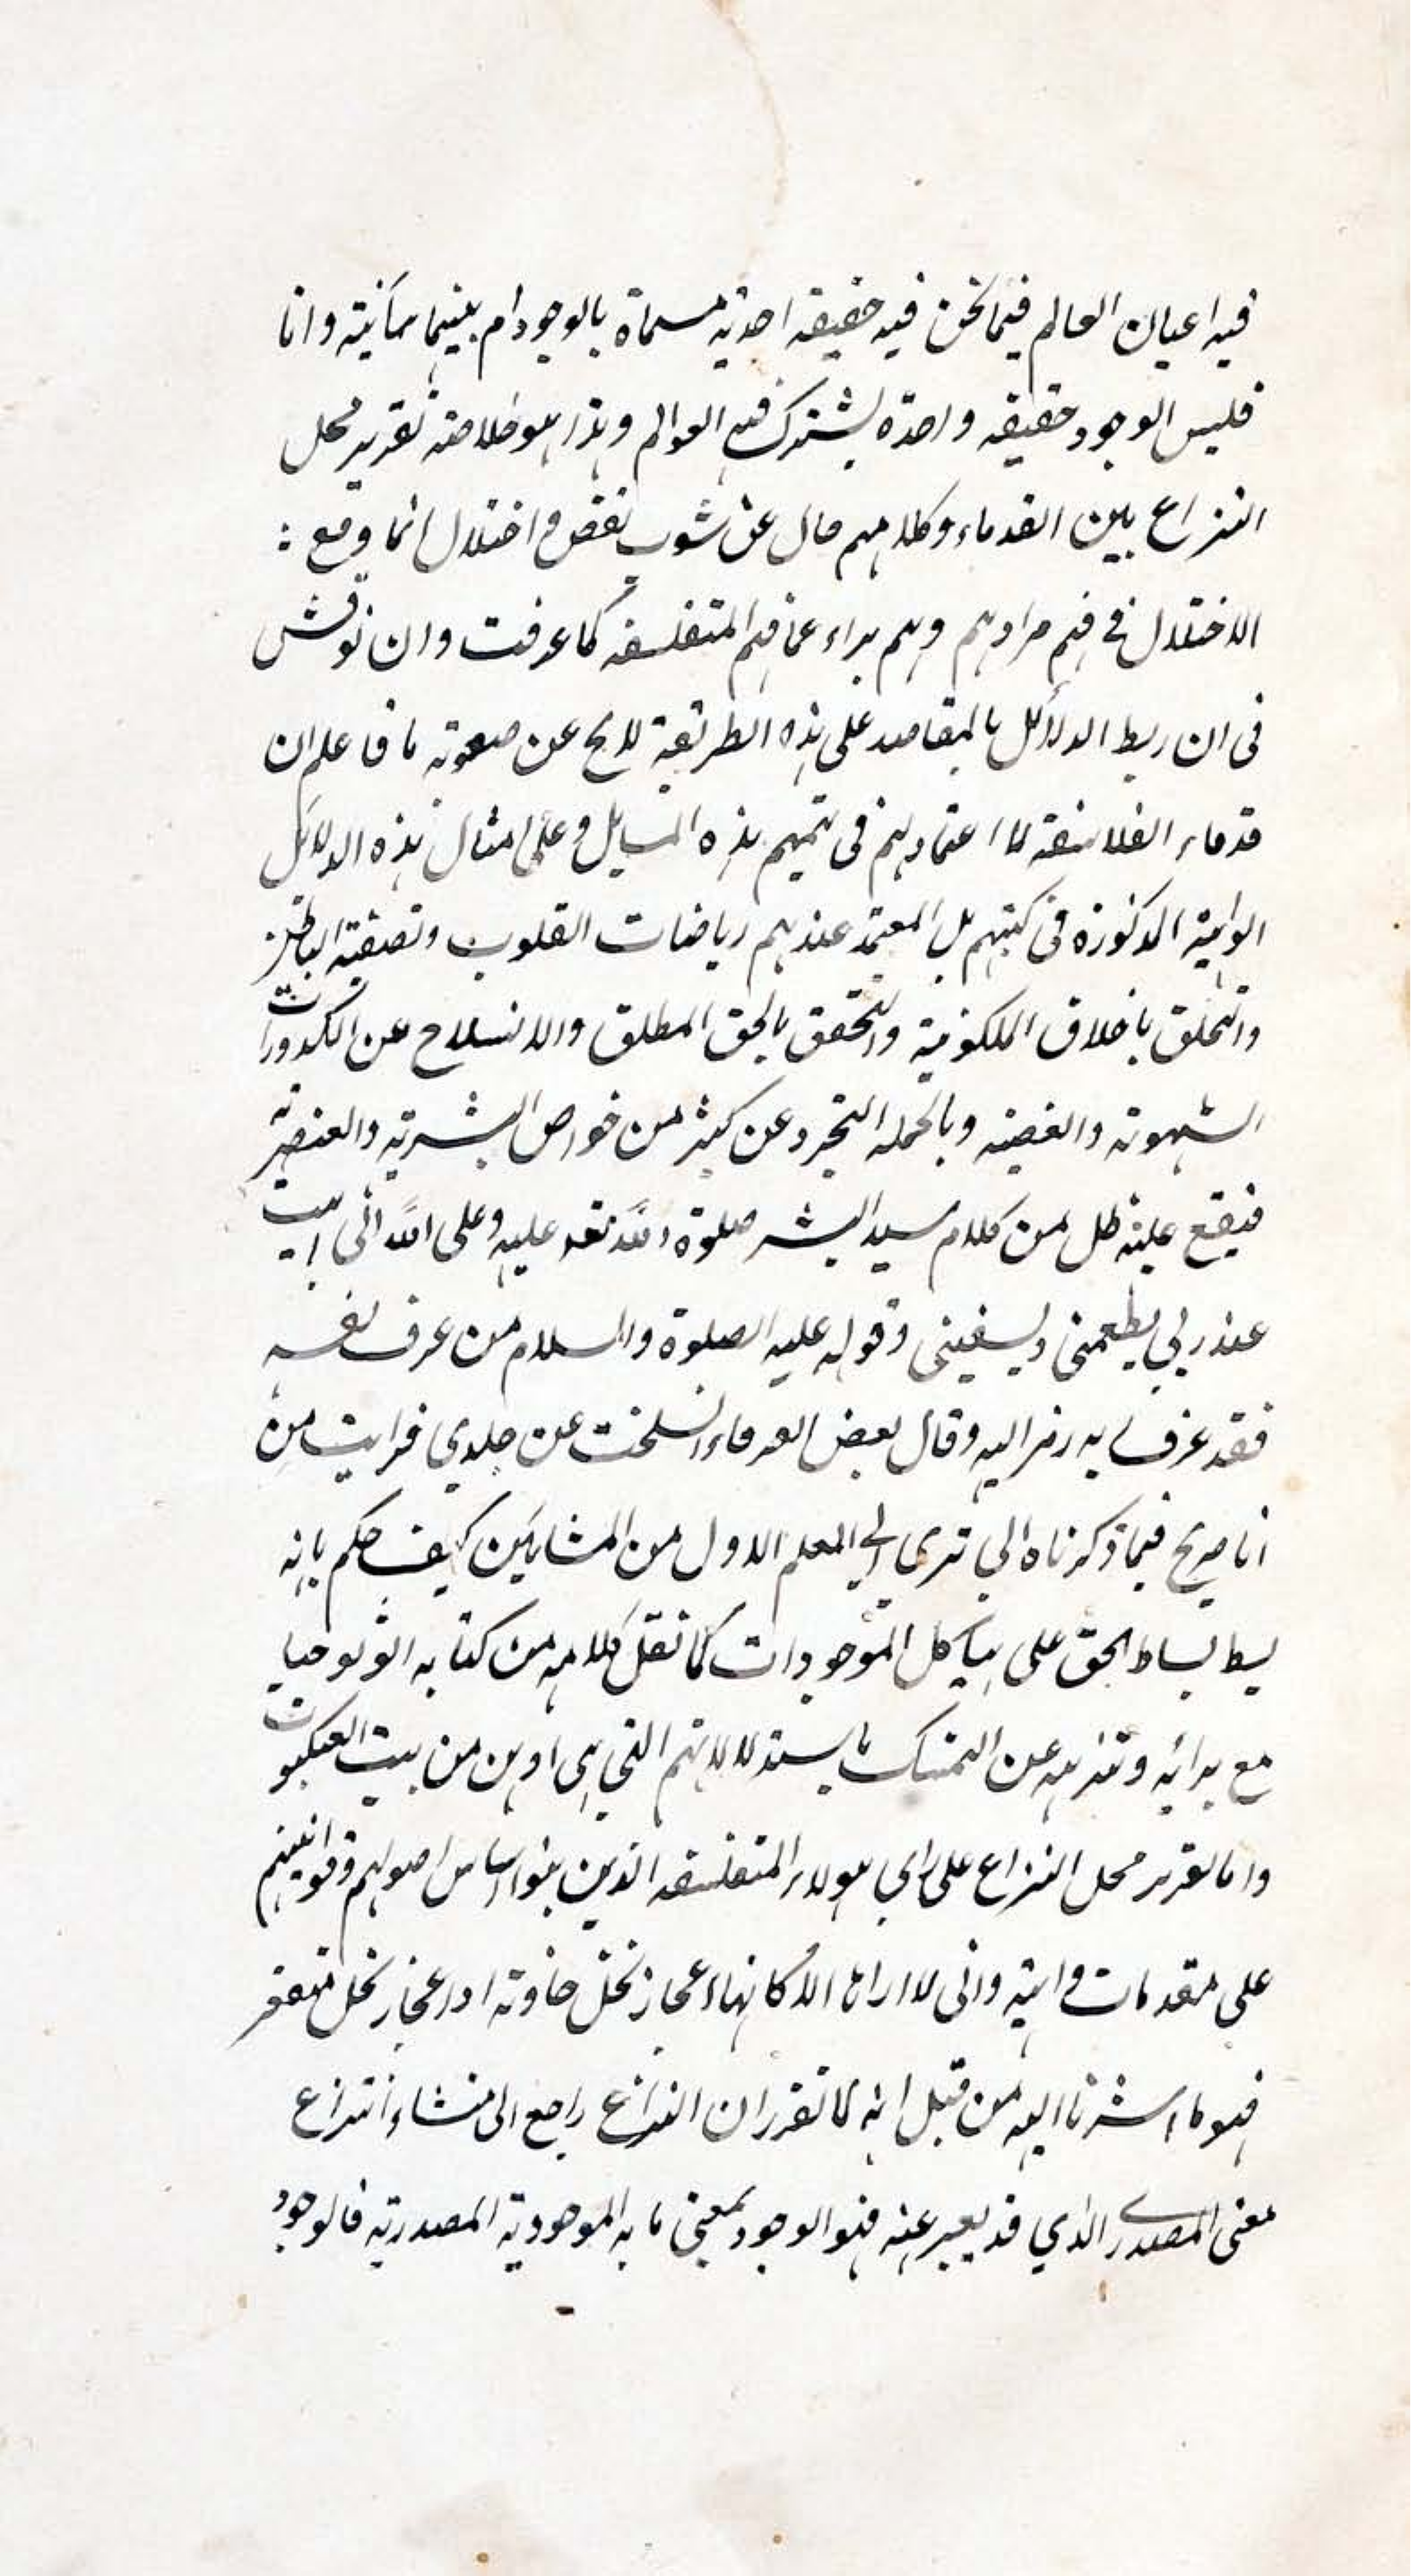 فيه اعيان العالم فيما نحن فيه حقيقه احديه مسماة بالوجود ام بينهما مبائنة واما
فليس الوجود حقيقه واحدة يشترك فيه العوالم وهذا هو خلاصة تقرير محل
النزاع بين القدماء وكلامهم خال عن شوب نقص واختلال انما وقع :
الاختلال في فهم مرادهم وهم براء عما فهم المتفلسفه كما عرفت وان نوقش
فى ان ربط الدلائل بالمقاصد على هذه الطريقة لايخ عن صعوبة ما فاعلم ان
قدماء الفلاسفة ما اعتمادهم فى تتميم هذه المسايل وعلى امثال هذه الدلائل
الواهية المذكورة فى كتبهم بل المعتمد عندهم رياضات القلوب وتصفية الباطن
والتخلق باخلاق الملكوتية والتحقق بالحق المطلق والانسلاخ عن الكدورات
الشهوية والغضبية وبالجملة التجرد عن كثير من خواص البشرية والعنصرية
فيقع عليه ظل من كلام سيد البشر صلوة الله تعه عليه وعلى اله انى ابيت
عند ربي يطعمنى ويسقينى وقوله عليه الصلوة والسلام من عرف نفسه
فقد عرف ربه رمز اليه وقال بعض العرفاء انسلخت عن جلدي فرايت من
انا صريح فيما ذكرناه الي ترى الي المعلم الاول من المشايين كيف حكم بانه
بسط بساط الحق على هياكل الموجودات كما نقل كلامه من كتابه اثولوجيا
مع برائه وتنزيهه عن التمسك باستدلالاتهم التي هى اوهن من بيت العنكبوت
واما تقرير محل النزاع على راي هولاء المتفلسفه الذين بنوا اساس اصولهم وقوانينهم
على مقدمات واهية وانى لا اراها الا كانها اعجاز نخل خاوية او اعجاز نخل منقعر
فهو ما اشرنا اليه من قبل انه لما تقرر ان النزاع راجع الى منشاء انتزاع
معنى المصدر الذي قد يعبر عنه فهو الوجود بمعنى ما به الموجودية المصدرية فالوجود